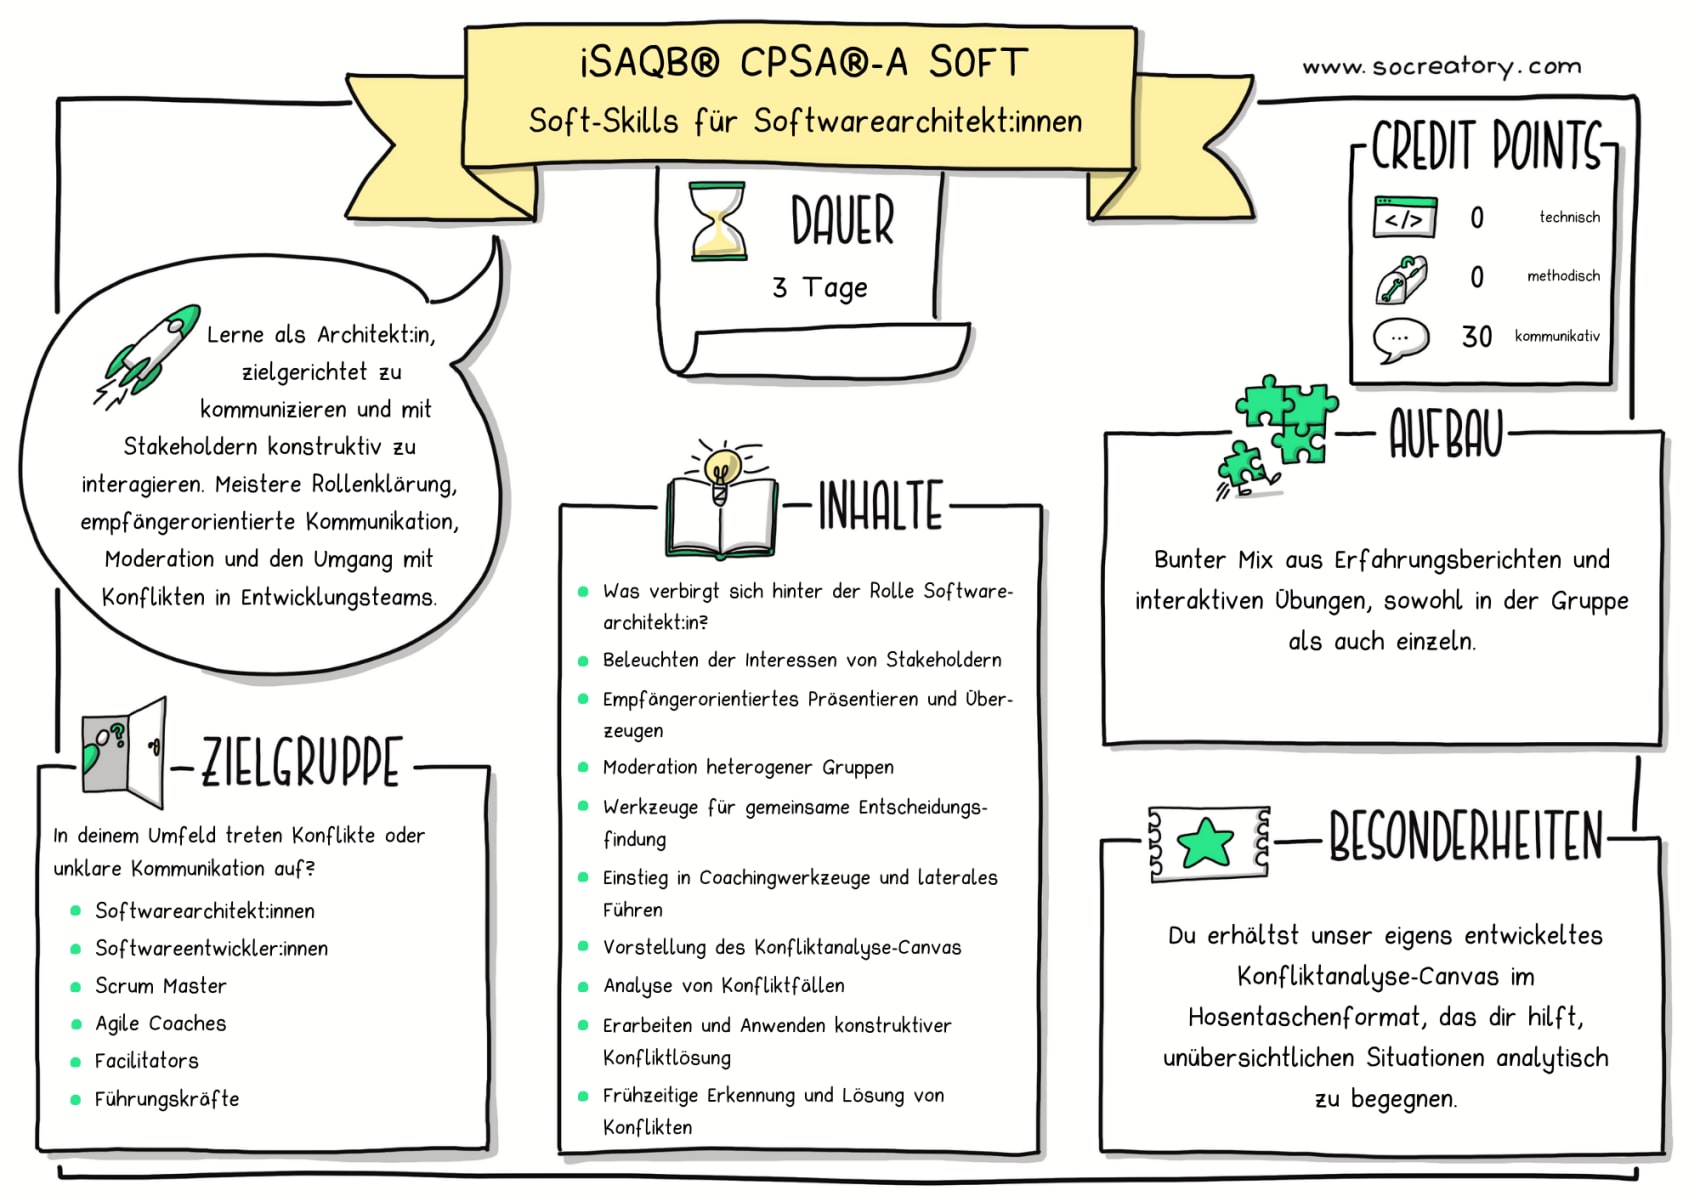 iSAQB® CPSA®-A SOFT
Soft-Skills für Softwarearchitekt:innen
www.socreatory.com
DAUER
3 Tage
CREDIT POINTS
</> 0 technisch
0 methodisch
... 30 kommunikativ
Lerne als Architekt:in,
zielgerichtet zu
kommunizieren und mit
Stakeholdern konstruktiv zu
interagieren. Meistere Rollenklärung,
empfängerorientierte Kommunikation,
Moderation und den Umgang mit
Konflikten in Entwicklungsteams.
ZIELGRUPPE
?
In deinem Umfeld treten Konflikte oder
unklare Kommunikation auf?
Softwarearchitekt:innen
Softwareentwickler:innen
Scrum Master
Agile Coaches
Facilitators
Führungskräfte
INHALTE
Was verbirgt sich hinter der Rolle Software-
architekt:in?
Beleuchten der Interessen von Stakeholdern
Empfängerorientiertes Präsentieren und Über-
zeugen
Moderation heterogener Gruppen
Werkzeuge für gemeinsame Entscheidungs-
findung
Einstieg in Coachingwerkzeuge und laterales
Führen
Vorstellung des Konfliktanalyse-Canvas
Analyse von Konfliktfällen
Erarbeiten und Anwenden konstruktiver
Konfliktlösung
Frühzeitige Erkennung und Lösung von
Konflikten
AUFBAU
Bunter Mix aus Erfahrungsberichten und
interaktiven Übungen, sowohl in der Gruppe
als auch einzeln.
BESONDERHEITEN
Du erhältst unser eigens entwickeltes
Konfliktanalyse-Canvas im
Hosentaschenformat, das dir hilft,
unübersichtlichen Situationen analytisch
zu begegnen.